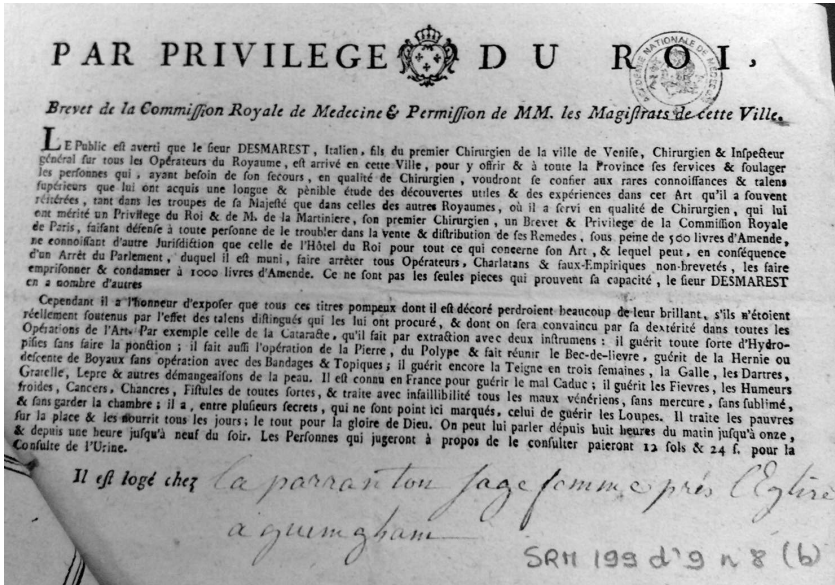 PAR PRIVILEGE DU ROI,
ACADÉMIE NATIONALE DE MÉDECINE
Brevet de la Commiſſion Royale de Medecine & Permiſſion de MM. les Magiſtrats de cette Ville.
LE Public eſt averti que le ſieur DESMAREST, Italien, fils du premier Chirurgien de la ville de Veniſe, Chirurgien & Inſpecteur
général ſur tous les Opérateurs du Royaume, eſt arrivé en cette Ville, pour y offrir & à toute la Province ſes ſervices & ſoulager
les perſonnes qui, ayant beſoin de ſon ſecours, en qualité de Chirurgien, voudront ſe confier aux rares connoiſſances & talens
ſupérieurs que lui ont acquis une longue & pènible étude des découvertes utiles & des expériences dans cet Art qu'il a ſouvent
réitérées, tant dans les troupes de ſa Majeſté que dans celles des autres Royaumes, où il a ſervi en qualité de Chirurgien, qui lui
ont mérité un Privilege du Roi & de M. de la Martiniere, ſon premier Chirurgien, un Brevet & Privilege de la Commiſſion Royale
de Paris, faiſant défenſe à toute perſonne de le troubler dans la vente & diſtribution de ſes Remedes, ſous peine de 500 livres d'Amende,
ne connoiſſant d'autre Juriſdiction que celle de l'Hôtel du Roi pour tout ce qui concerne ſon Art, & lequel peut, en conſéquence
d'un Arrêt du Parlement, duquel il eſt muni, faire arrêter tous Opérateurs, Charlatans & faux-Empiriques non-brevetés, les faire
empriſonner & condamner à 1000 livres d'Amende. Ce ne ſont pas les ſeules pieces qui prouvent ſa capacité, le ſieur DESMAREST
en a nombre d'autres
Cependant il a l'honneur d'expoſer que tous ces titres pompeux dont il eſt décoré perdroient beaucoup de leur brillant, s'ils n'étoient
réellement ſoutenus par l'effet des talens diſtingués qui les lui ont procuré, & dont on ſera convaincu par ſa dextérité dans toutes les
Opérations de l'Art. Par exemple celle de la Cataracte, qu'il fait par extraction avec deux inſtrumens : il guérit toute ſorte d'Hydro-
piſies ſans faire la ponction ; il fait auſſi l'opération de la Pierre, du Polype & fait réunir le Bec-de-lievre, guérit de la Hernie ou
deſcente de Boyaux ſans opération avec des Bandages & Topiques ; il guérit encore la Teigne en trois ſemaines, la Galle, les Dartres,
Gratelle, Lepre & autres démangeaiſons de la peau. Il eſt connu en France pour guérir le mal Caduc ; il guérit les Fievres, les Humeurs
froides, Cancers, Chancres, Fiſtules de toutes ſortes, & traite avec infaillibilité tous les maux vénériens, ſans mercure, ſans ſublimé,
& ſans garder la chambre ; il a, entre pluſieurs ſecrets, qui ne ſont point ici marqués, celui de guérir les Loupes. Il traite les pauvres
ſur la place & les nourrit tous les jours ; le tout pour la gloire de Dieu. On peut lui parler dépuis huit heures du matin juſqu'à onze,
& depuis une heure juſqu'à neuf du ſoir. Les Perſonnes qui jugeront à propos de le conſulter paieront 12 ſols & 24 ſ. pour la
Conſulte de l'Urine.
Il eſt logé chez la parranton sage femme prés l'Eglise
a guemgham
SRM 199 d'9 n 8 (b)